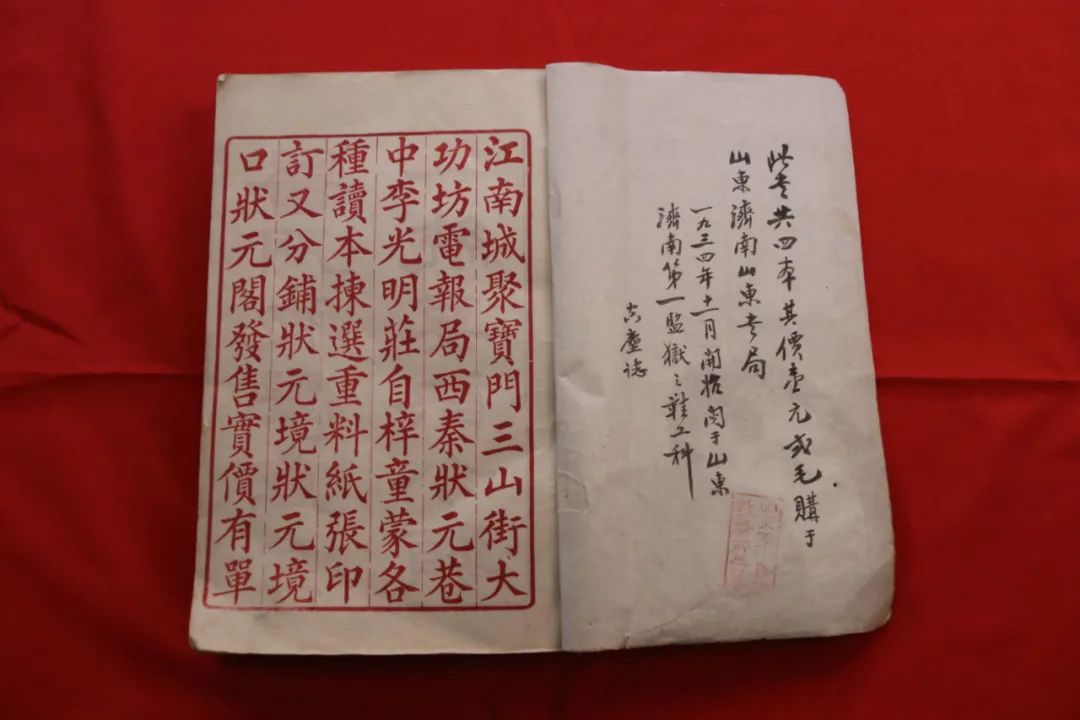 此书共四本其價壹元贰毛購于
山東濟南山東书局
一九三四年十一月開始閱于山東
濟南第一監獄之鞋工科
塵誌
江南城聚寶門三山街大
功坊電報局西秦狀元巷
中李光明莊自梓童蒙各
種讀本揀選重料紙張印
訂又分鋪狀元境狀元境
口狀元閣發售實價有單